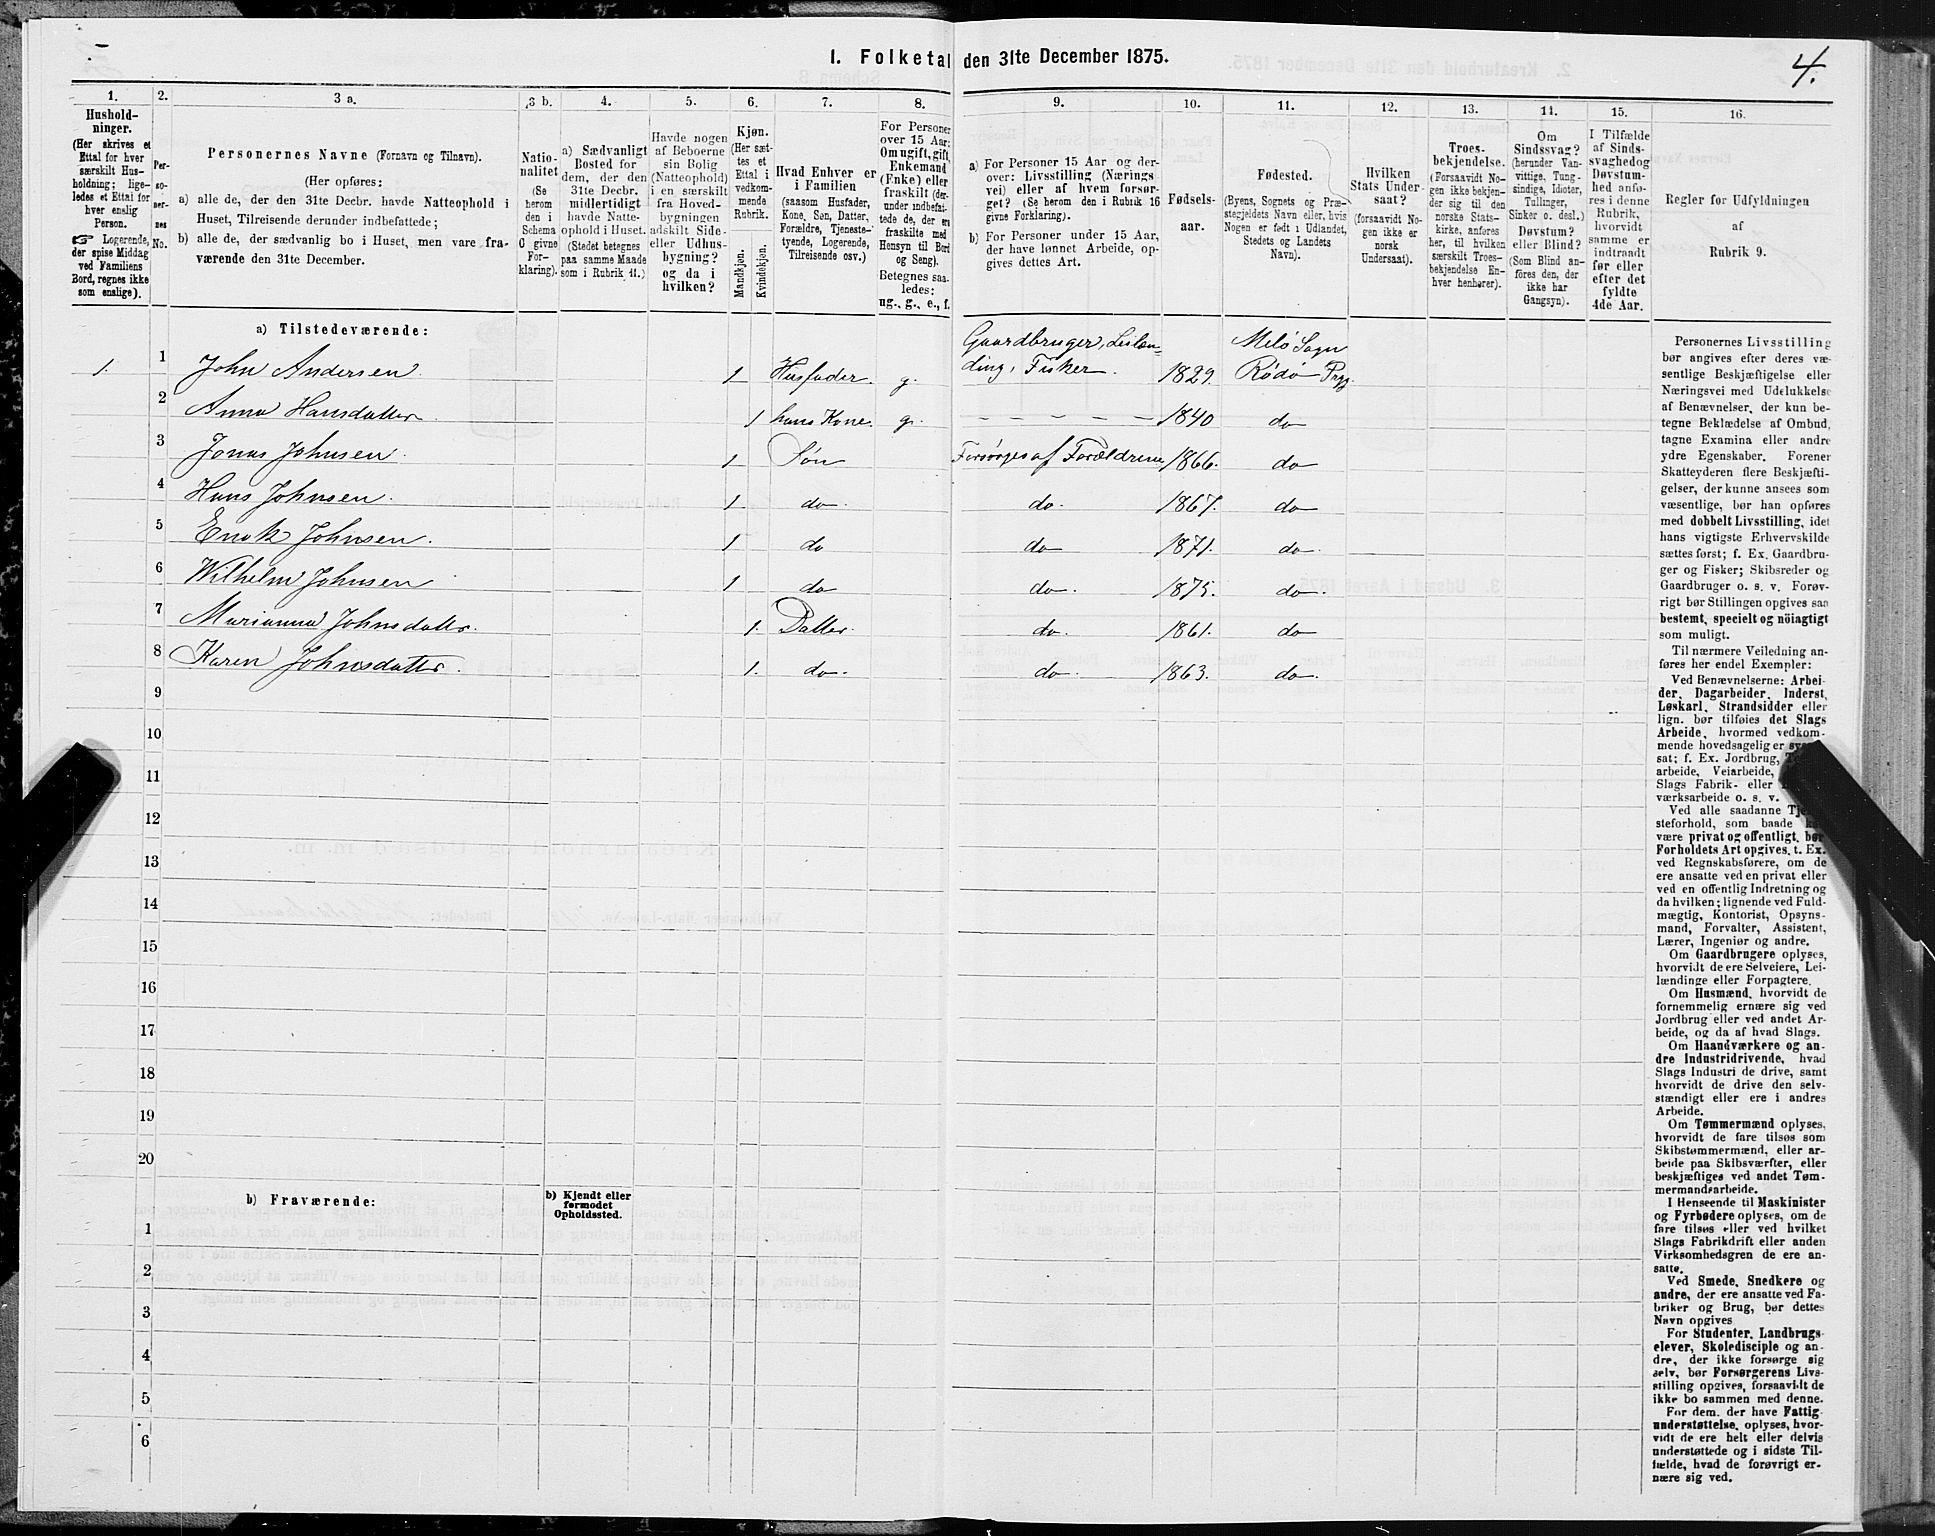 I. Folketal den 31te December 1875.
4.
1.
Hushold-
ninger.
(Her skrives et
Ettal for hver
særskilt Hus-
holdning; lige-
ledes et Ettal for
hver enslig
Person.
Logerende,
der spise Middag
ved Familiens
Bord, regnes ikke
som enslige).
2.
Per-
so-
ner-
nes
No.
3 a.
Personernes Navne (Fornavn og Tilnavn).
(Her opføres:
a) alle de, der den 31te Decbr. havde Natteophold i
Huset, Tilreisende derunder indbefattede;
b) alle de, der sædvanlig bo i Huset, men vare fra-
værende den 31te December.
3 b.
Natio-
nalitet
(Se
herom
den i
Schema
C givne
For-
klaring).
4.
a) Sædvanligt
Bosted for
dem, der den
31te Decbr.
midlertidigt
havde Natte-
ophold i Huset.
(Stedet betegnes
paa samme Maade
som i Rubrik 11.)
5.
Havde nogen
af Beboerne
sin Bolig
(Natteophold)
i en særskilt
fra Hoved-
bygningen
adskilt Side-
eller Udhus-
bygning?
og da i
hvilken?
6.
Kjøn.
(Her sæt-
tes et
Ettal i
vedkom-
mende
Rubrik.
Mandkjøn.
Kvindekjøn.
7.
Hvad Enhver er
i Familien
(saasom Husfader,
Kone, Søn, Datter,
Forældre, Tjeneste-
tyende, Logerende,
Tilreisende osv.)
8.
For Personer
over 15 Aar:
Om ugift, gift,
Enkemand
(Enke) eller
fraskilt (der-
under indbefat-
tede de, der ere
fraskilte med
Hensyn til Bord
og Seng).
Betegnes saa-
ledes:
ug., g., e., f.
9.
a) For Personer 15 Aar og der-
over: Livsstilling (Nærings-
vei) eller af hvem forsør-
get? (Se herom den i Rubrik 16
givne Forklaring).
b) For Personer under 15 Aar,
der have lønnet Arbeide, op-
gives dettes Art.
10.
Fødsels-
aar.
11.
Fødested.
(Byens, Sognets og Præ-
stegjeldets Navn eller, hvis
Nogen er født i Udlandet,
Stedets og Landets
Navn).
12.
Hvilken
Stats Under-
saat?
(forsaavidt No-
gen ikke er
norsk
Undersaat).
13.
Troes-
bekjendelse.
(Forsaavidt No-
gen ikke bekjen-
der sig til den
norske Stats-
kirke, anføres
her, til hvilken
særskilt Troes-
bekjendelse En-
hver henhører).
14.
Om
Sindssvag?
(herunder Van-
vittige, Tung-
sindige, Idioter,
Tullinger,
Sinker o. desl.)
Døvstum?
eller Blind?
(Som Blind an-
føres den, der
ikke har
Gangsyn).
15.
I Tilfælde
af Sinds-
svaghed og
Døvstum-
hed anfø-
res i denne
Rubrik,
hvorvidt
samme er
indtraadt
før eller
efter det
fyldte
4de Aar.
16.
Regler for Udfyldningen
af
Rubrik 9.
a) Tilstedeværende:
1. 1 John Andersen. 1 Husfader. g. Gaardbruger, Leilæn-
ding, Fisker. 1829. Melø Sogn
Rødø Prgj.
2 Anna Hansdatter. 1 hans Kone. g. – – – – – 1840 do
3 Jonas Johnsen. 1 Søn Forsørges af Forældrene 1866. do
4 Hans Johnsen. 1 do. do. 1867. do
5 Enok Johnsen. 1 do do 1871. do.
6 Wilhelm Johnsen 1 do do. 1875. do.
7 Marianna Johnsdatter. 1. Datter. do. 1861. do
8 Karen Johnsdatter. 1. do. do. 1863. do.
9
10
11
12
13
14
15
16
17
18
19
20
b) Fraværende:
b) Kjendt eller
formodet
Opholdssted.
1
2
3
4
5
6
Personernes Livsstilling
bør angives efter deres væ-
sentlige Beskjæftigelse eller
Næringsvei med Udelukkelse
af Benævnelser, der kun be-
tegne Beklædelse af Ombud,
tagne Examina eller andre
ydre Egenskaber. Forener
Skatteyderen flere Beskjæfti-
gelser, der kunne ansees som
væsentlige, bør han opføres
med dobbelt Livsstilling, idet
hans vigtigste Erhvervskilde
sættes først; f. Ex. Gaardbru-
ger og Fisker; Skibsreder og
Gaardbruger o. s. v. Forøv-
rigt bør Stillingen opgives saa
bestemt, specielt og nöiagtigt
som muligt.
Til nærmere Veiledning an-
føres her endel Exempler:
Ved Benævnelserne: Arbei-
der, Dagarbeider, Inderst,
Løskarl, Strandsidder eller
lign. bør tilføies det Slags
Arbeide, hvormed vedkom-
mende hovedsagelig er
sat; f. Ex. Jordbrug,
arbeide, Veiarbeide,
Slags Fabrik- eller
værksarbeide o. s. v.
Ved alle saadanne
steforhold, som baade
være privat og offentligt, bør
Forholdets Art opgives, t. Ex.
ved Regnskabsførere, om de
ere ansatte ved en privat eller
ved en offentlig Indretning og
da hvilken; lignende ved Fuld-
mægtig, Kontorist, Opsyns-
mand, Forvalter, Assistent,
Lærer, Ingeniør og andre.
Om Gaardbrugere oplyses,
hvorvidt de ere Selveiere, Lei-
lændinge eller Forpagtere.
Om Husmænd, hvorvidt de
fornemmelig ernære sig ved
Jordbrug eller ved andet Ar-
beide, og da af hvad Slags.
Om Haandværkere og an-
dre Industridrivende, hvad
Slags Industri de drive, samt
hvorvidt de drive den selv-
stændigt eller ere i andres
Arbeide.
Om Tømmermænd oplyses,
hvorvidt de fare tilsøs som
Skibstømmermænd, eller ar-
beide paa Skibsværfter, eller
beskjæftiges ved andet Tøm-
mermandsarbeide.
I Henseende til Maskinister
og Fyrbødere oplyses, om de
fare tilsøs eller ved hvilket
Slags Fabrikdrift eller anden
Virksomhedsgren de ere an-
satte.
Ved Smede, Snedkere og
andre, der ere ansatte ved Fa-
briker og Brug, bør dettes
Navn opgives
For Studenter, Landbrugs-
elever, Skoledisciple og an-
dre, der ikke forsørge sig
selv, bør Forsørgerens Livs-
stilling opgives, forsaavidt de
ikke bo sammen med denne.
For dem, der have Fattig-
understøttelse, oplyses, hvor-
vidt de ere helt eller delvis
understøttede og i sidste Til-
fælde, hvad de forøvrigt er-
nære sig ved.